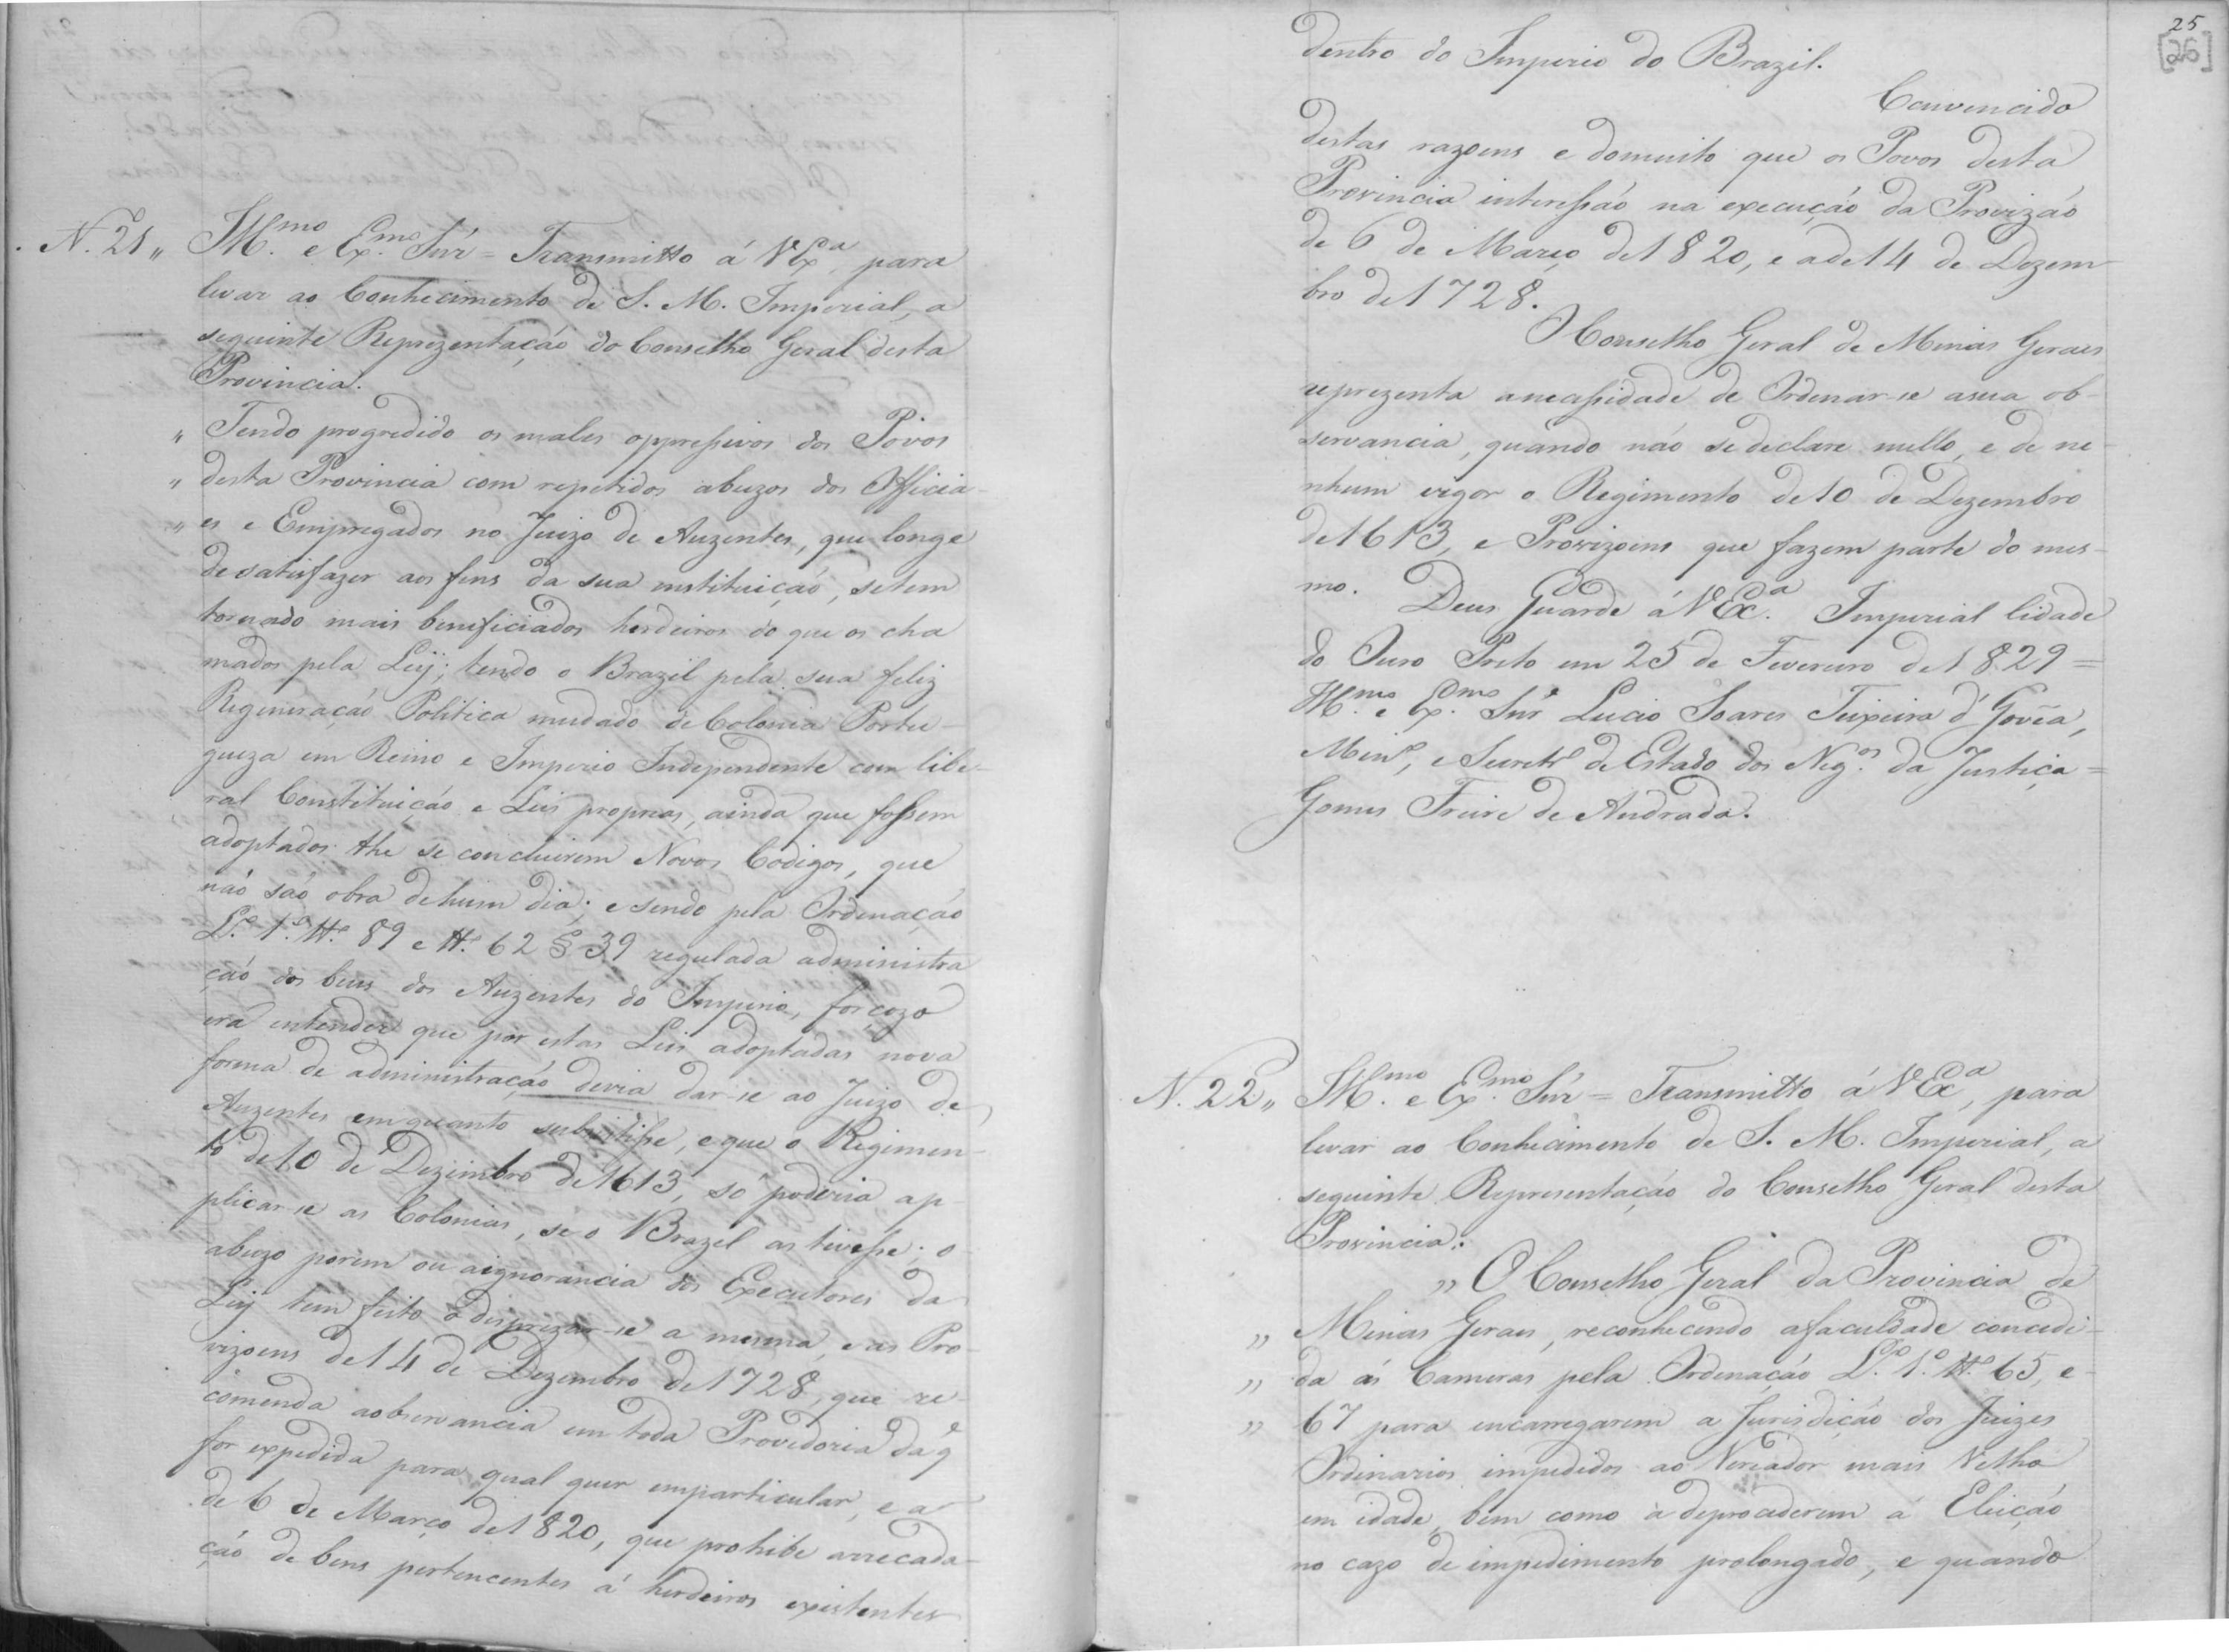 N. 21,, Ill.mo e Ex.mo Snr = Transmitto á V Ex.a para
levar ao Conhecimento de S. M. Imperial, a
seguinte Reprezentação do Conselho Geral desta
Provincia.
" Tendo progredido os males oppressivos dos Povos
" desta Provincia com repetidos abuzos dos Officia-
" es e Empregados no Juizo de Auzentes, que longe
de satisfazer aos fins da sua instituição, se tem
tornado mais beneficiados herdeiros do que os cha
mados pela Ley; tendo o Brazil pela sua feliz
Regeneração Politica mudado de Colonia Portu-
gueza em Reino e Imperio Independente com libe-
ral Constituição e Leis proprias, ainda que fossem
adoptados the se concluirem Novos Codigos, que
não são obra de hum dia; e sendo pela Ordenação
L.o 1.o tt.o 89 e tt.o 62 § 39 regulada administra
ção dos bens dos Auzentes do Imperio, forçozo
era entender que por estas Leis adoptadas nova
forma de administração devia dar-se ao Juizo de
Auzentes em quanto subsistisse, e que o Regimen-
to de 10 de Dezembro de 1613, só poderia ap-
plicar-se as Colonias, se o Brazil as tivesse; o
abuzo porem ou a ignorancia dos Executores da
Ley tem feito o disprezar-se a mesma, e as Pro-
vizoens de 14 de Dezembro de 1728, que re-
comenda a observancia em toda Provedoria da q
for expedida para qual quer em particular, e a
de 6 de Março de 1820, que prohibe arrecada-
ção de bens pertencentes á herdeiros existentes
25
[26]
dentro do Imperio do Brazil.
Convencido
destas razoens e do muito que os Povos desta
Provincia interessão na execução da Provizão
de 6 de Março de 1820, e a de 14 de Dezem-
bro de 1728.
O Conselho Geral de Minas Geraes
reprezenta a necessidade de Ordenar-se a sua ob-
servancia, quando não se declare nullo, e de ne-
nhum vigor o Regimento de 10 de Dezembro
de 1613, e Provizoens que fazem parte do mes-
mo. Deus Guarde á V Ex.a Imperial Cidade
do Ouro Preto em 25 de Fevereiro de 1829 =
Ill.mo e Ex.mo Snr Lucio Soares Teixeira d' Govea,
Min.o, e Secret.o de Estado dos Neg.os da Justiça =
Gomes Freire de Andrada.
N. 22,, Ill.mo e Ex.mo Snr = Transmitto á V Ex.a, para
levar ao Conhecimento de S. M. Imperial, a
seguinte Representação do Conselho Geral desta
Provincia:
" O Conselho Geral da Provincia de
" Minas Geraes, reconhecendo a faculdade concedi-
" da ás Cameras pela Ordenação L.o 1.o tt.o 65, e
" 67 para encarregarem a Jurisdição dos Juizes
Ordinarios impedidos ao Vereador mais Velho
em idade, bem como a de procederem á Eleição
no cazo de impedimento prolongado, e quando